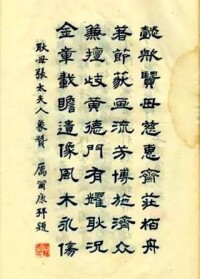 懿歟賢母慈惠齊莊柏舟
著節荻画流芳博施濟众
兼擅歧黄德門有耀耿况
金章載瞻遺像風木永傷
耿母張太夫人象贊 厲爾康拜題